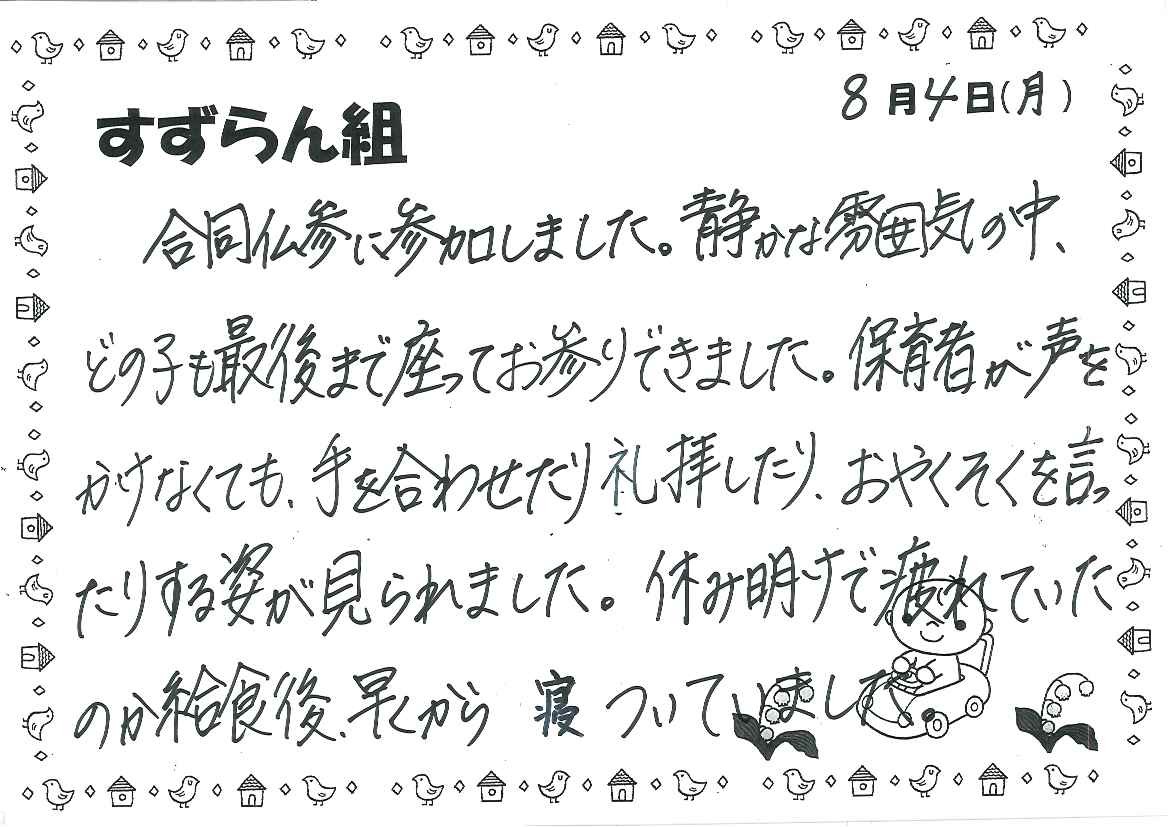 8月4日(月)
すずらん組
合同仏参に参加しました。静かな雰囲気の中、
どの子も最後まで座ってお参りできました。保育者が声を
かけなくても、手を合わせたり礼拝したり、おやくそくを言っ
たりする姿が見られました。休み明けで疲れていた
のか給食後、早くから寝ついていました